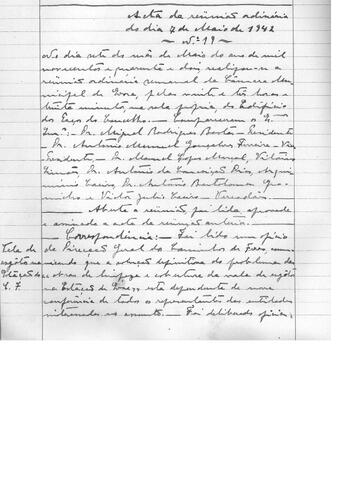 Acta da reünião ordinária
do dia 7 de Maio de 1942
- Nº 19 -
No dia sete do mês de Maio do ano de mil
novecentos e quarenta e dois realizou-se a
reünião ordinária semanal da Câmara Mu-
nicipal de pelas vinte e três horas e
trinta minutos, na sala própria do Edifício
dos Paços do Concelho. - Compareceram os
Dr. Miguel Rodrigues Bastos - Presidente
- Dr. António Manuel Gonçalves Ferreira - Vice
Presidente, - Dr. Manuel Lopes Marçal, Vitorino
Dr. António da Conceição Dias,
Dr. António Bartolomeu
e Victor Julio - Vereadores.
Aberta a reünião, foi lida, aprovada
e assinada a acta da reünião anterior.
- Correspondência: - Foi lido um ofício
da Direcção Geral de Caminhos de Ferro, comu-
nicando que a solução definitiva do problema da
limpeza e cobertura da vala de esgôto
na Estação de está dependente de nova
conferência de todos os representantes das entidades
interessadas no assunto. - Foi deliberado oficiar
Vala de
esgôto na
Estação do
C. F.